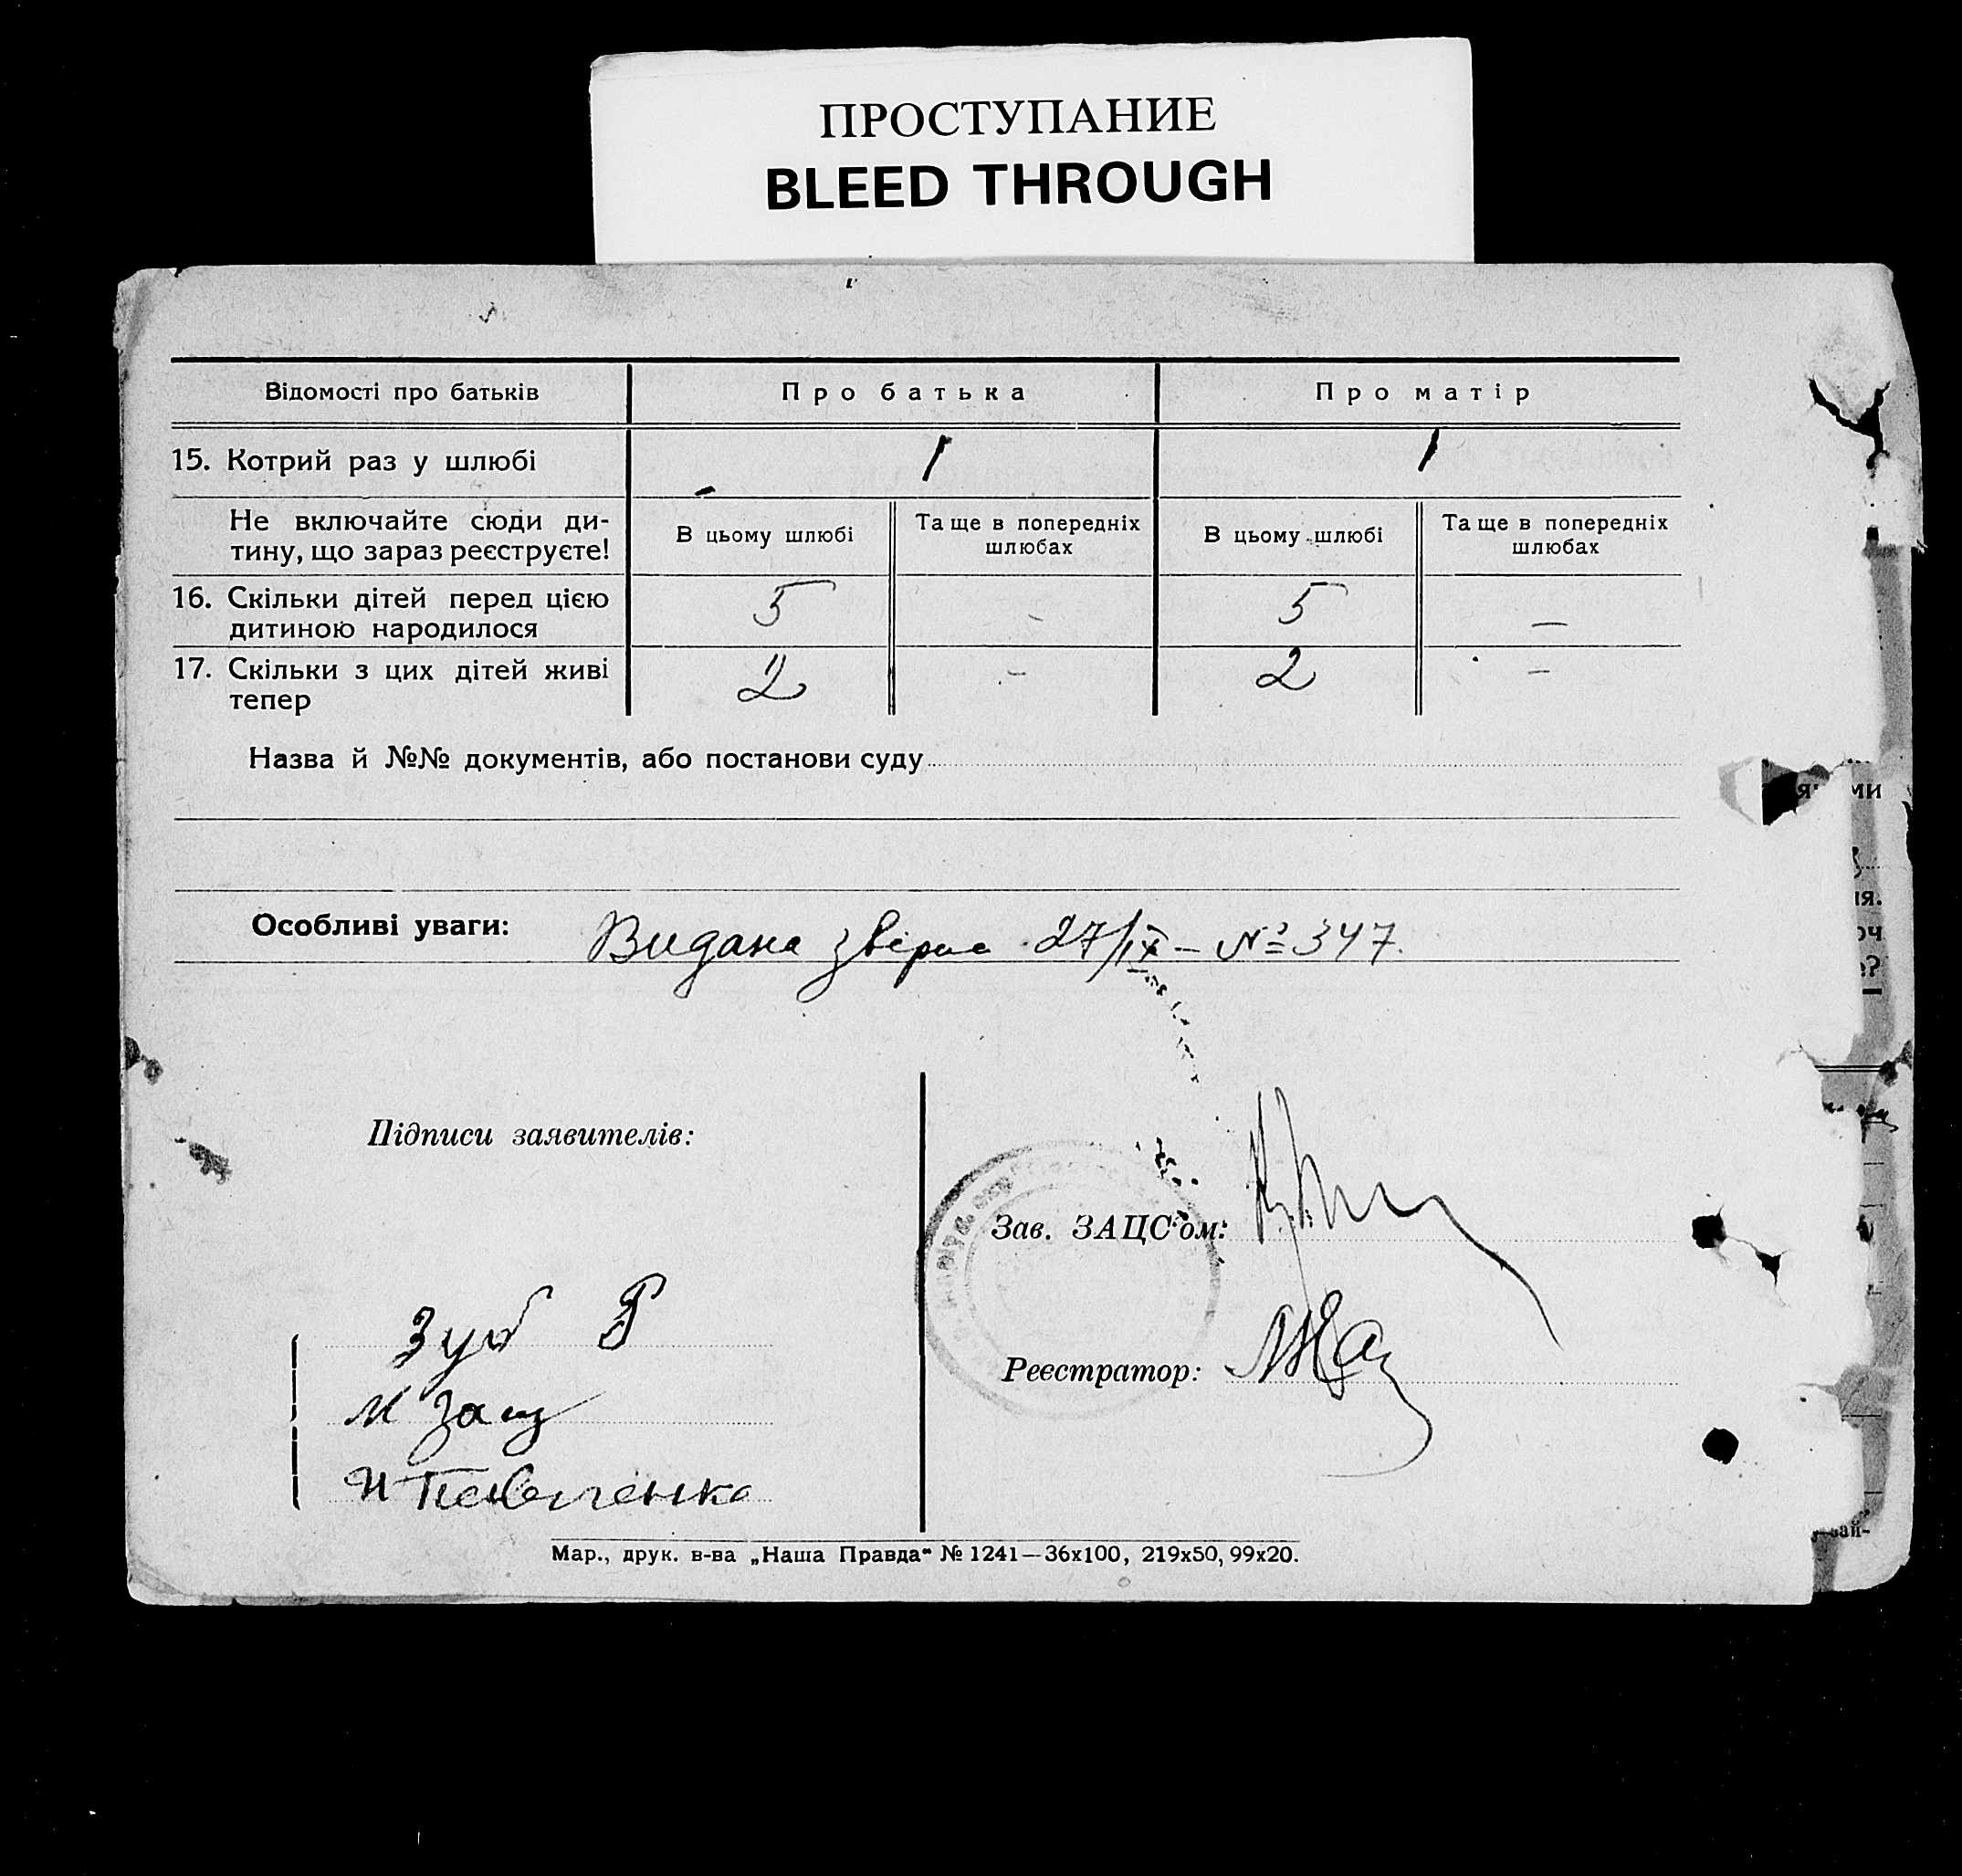 ПРОСТУПАНИЕ
BLEED THROUGH
Відомості про батьків Про батька Про матір
15. Котрий раз у шлюбі 1 1
Не включайте сюди ди-
тину, що зараз реєструєте!
В цьому шлюбі
Та ще в попередніх
шлюбах
В цьому шлюбі
Та ще в попередніх
шлюбах
16. Скільки дітей перед цією
дитиною народилося
5 - 5 —
17. Скільки з цих дітей живі
тепер
2 - 2 —
Назва й №№ документів, або постанови суду
Особливі уваги: Видана 27/IX — № 347.
Підписи заявителів:
Зав. ЗАЦС'ом:
Зуб
Реєстратор:
М
Мар., друк. в-ва „Наша Правда" № 1241—36х100, 219х50, 99х20.